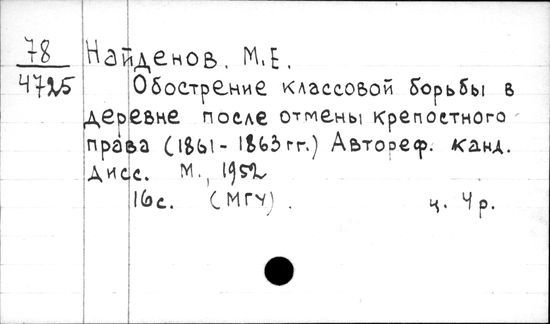 78 Найденов. М.Е.
4725 Обострение классовой борьбы в
деревне после отмены крепостного
права (1861-1863 гг.) Автореф. канд.
дисс. М., 1952
16с. (МГУ). ц. 4р.